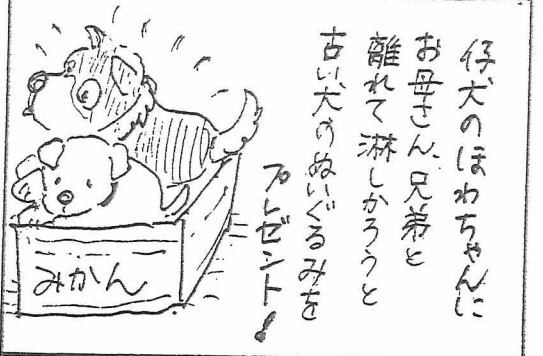 仔犬のほわちゃんに
お母さん、兄弟と
離れて淋しかろうと
古い犬のぬいぐるみを
プレゼント!
みかん